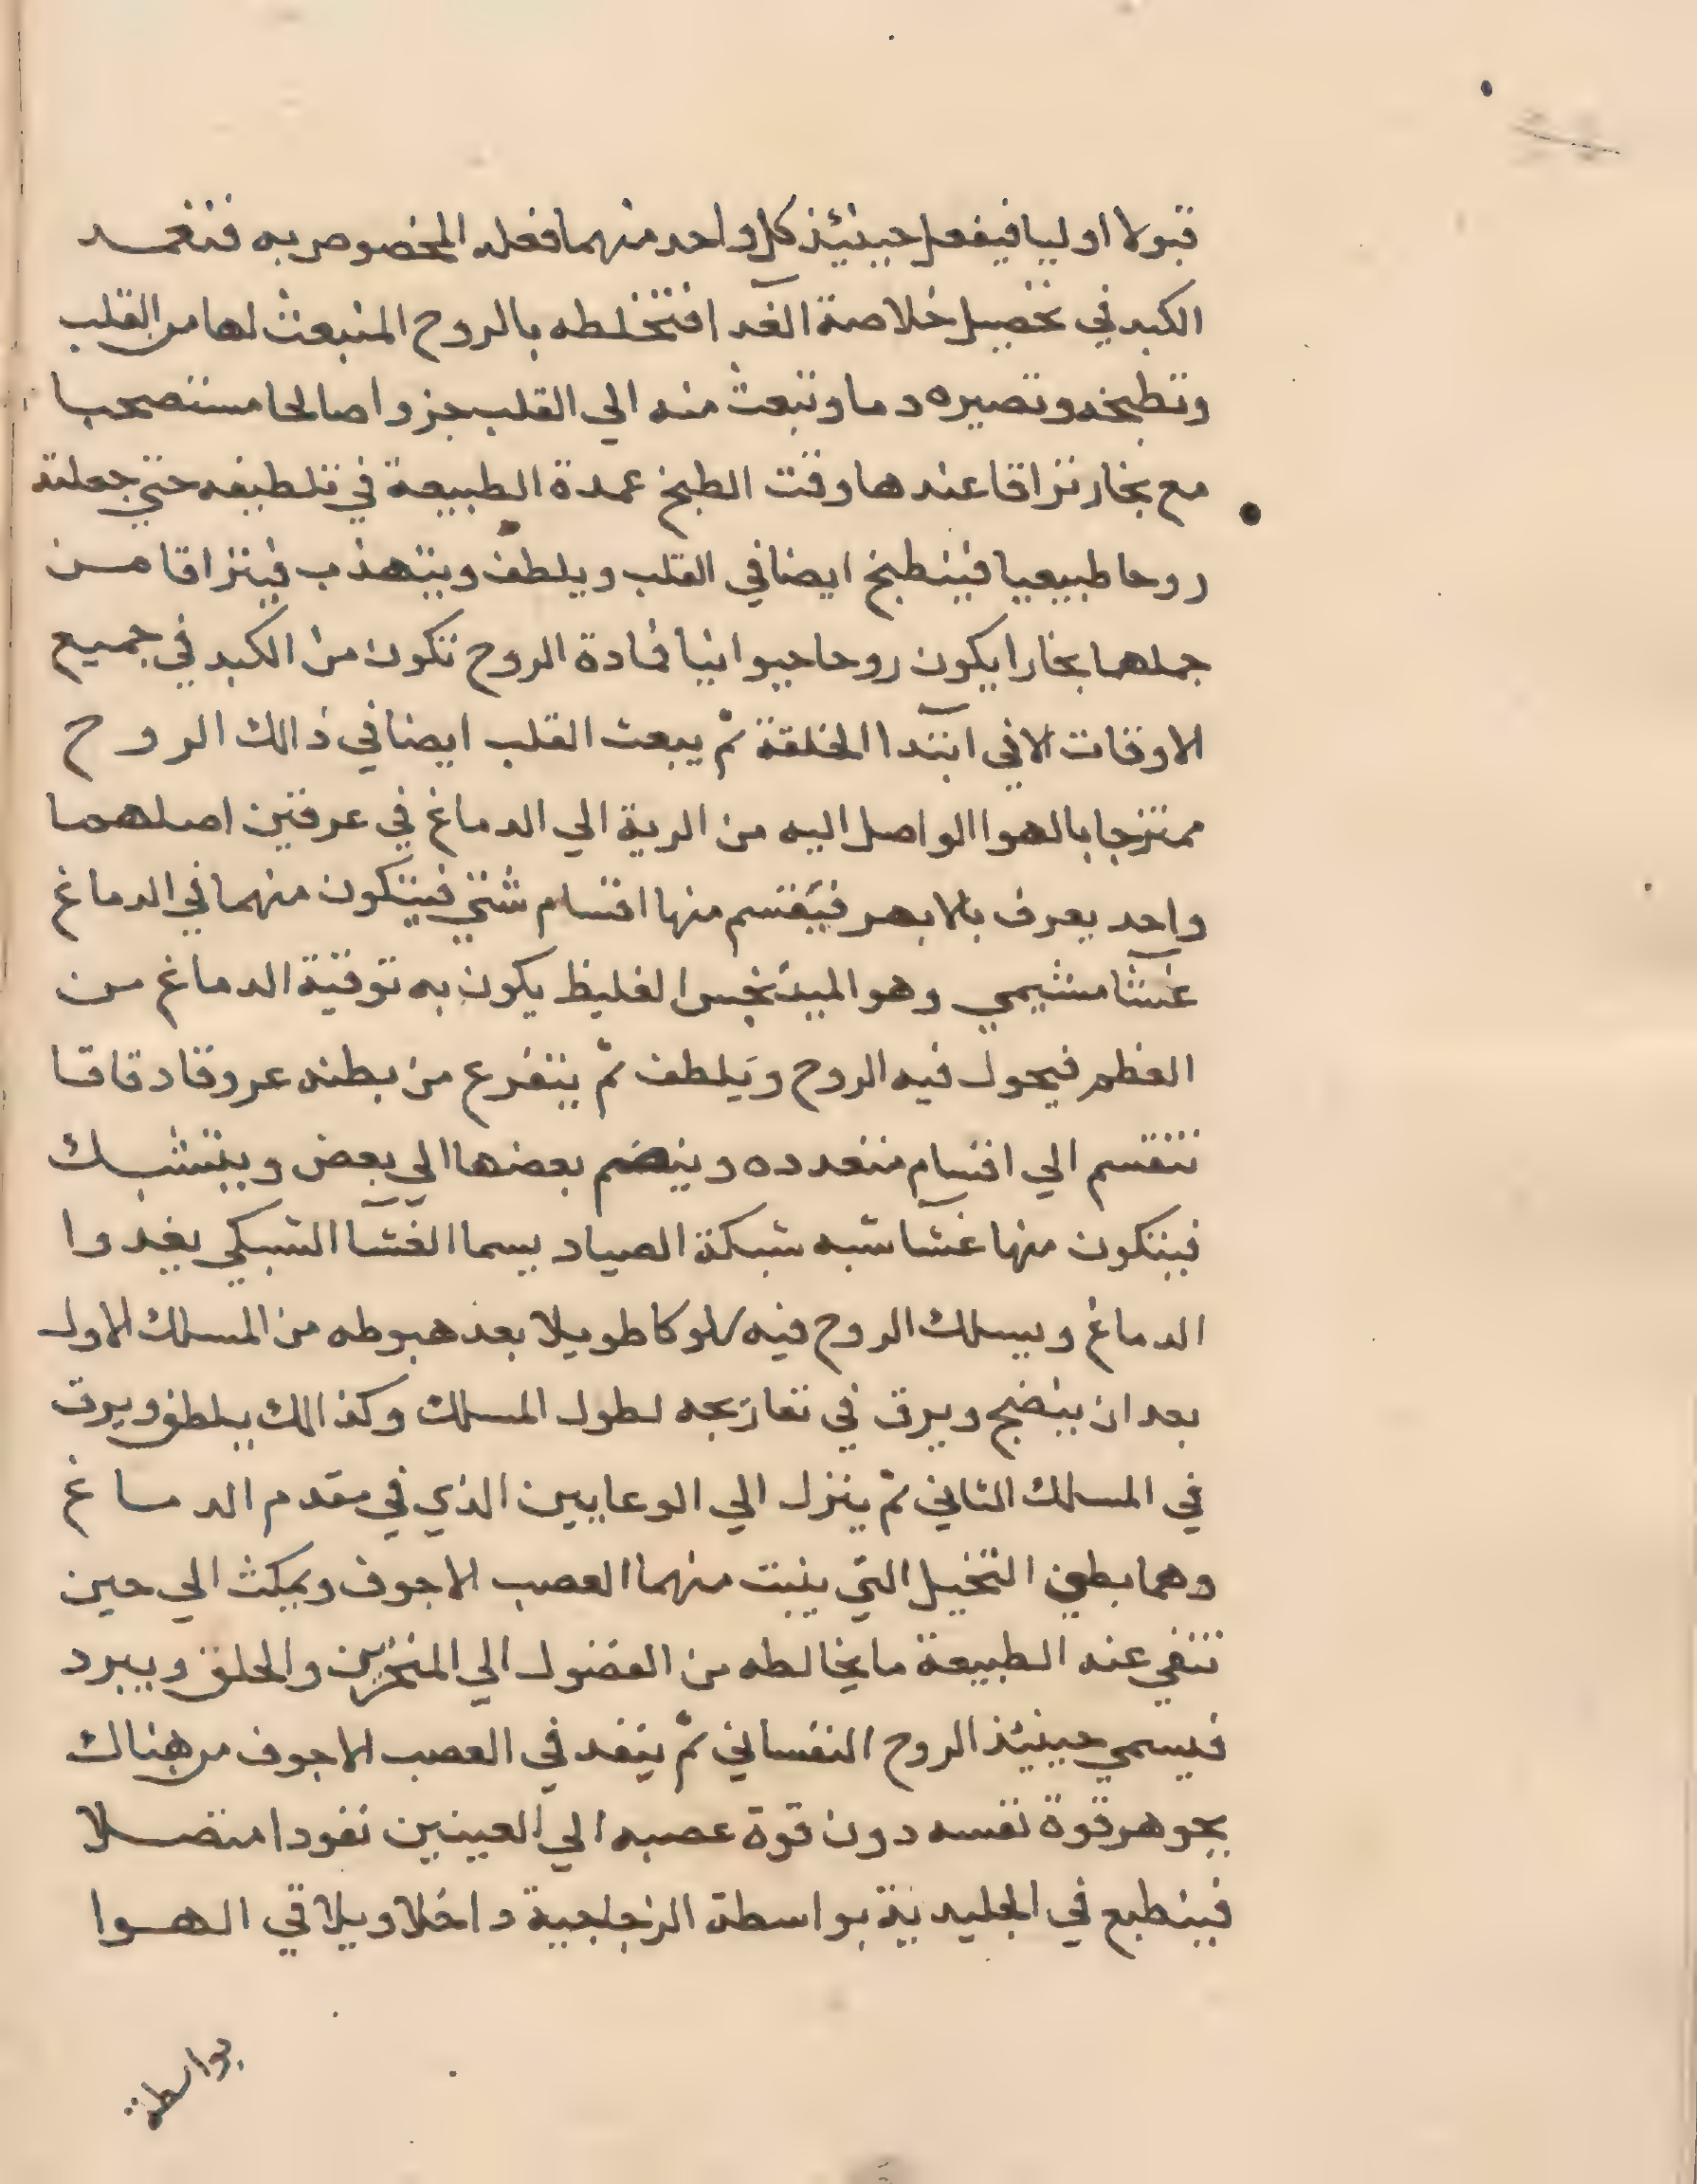 قبولا اوليا فيفعل حينئذ كل واحد منهما فعله المخصوص به فتغمد
الكبد في تحصيل خلاصة الغدآ فتخلطه بالروح المنبعث لها من القلب
وتطبخه وتصيره دما وتبعث منه الي القلب جزوا صالحا مستصحبا
مع بخار تراقا عندها وقت الطبخ عمدة الطبيعة في تلطيفه حتي جعلته
روحا طبيعيا فينطبخ ايضا في القلب ويلطف ويتهذب فيتراقا مـن
جملهما بخارا يكون روحا حيوانيا فمادة الروح تتكون من الكبد في جميع
الاوقات الا في ابتدآ الخلقة ثم يبعث القلب ايضا في ذالك الروح
ممتزجا بالهوا الواصل اليه من الرية الي الدماغ في عرقين اصلهما
واحد يعرف بالابهر فيقسم منها اقسام شتي فيتكون منهما في الدماغ
غشآ مشيمي وهو الميننخس الغليظ يكون به توقية الدماغ من
العظم فيحول فيه الروح ويلطف ثم يتفرع من بطنه عروقا دقاقا
تنقسم الي اقسام متعدده وينضم بعضها الي بعض ويتشبك
فيتكون منها غشآ شبه شبكة الصياد يسما الغشآ الشبكي يغدوا
الدماغ ويسلك الروح فيه سلوكا طويلا بعد هبوطه من المسلك الاول
بعد ان ينضج ويرق في تعاريجه لطول المسلك وكذالك يلطف ويرق
في المسلك الثاني ثم ينزل الي الوعايين الذي في مقدم الدماغ
وهما بطين التخيل التي ينبت منهما العصب الاجوف ويمكث الي حين
تنفي عنه الطبيعة ما يخالطه من الفضول الي المنخرين والحلق ويبرد
فيسمي حينئذ الروح النفساني ثم ينفد في العصب الاجوف من هناك
بجوهر قوة نفسه دون قوة عصبه الي العينين نفودا متصلا
فينطبع في الجليدية بواسطة الزجاجية داخلا ويلاقي الهـوا
بواسطة